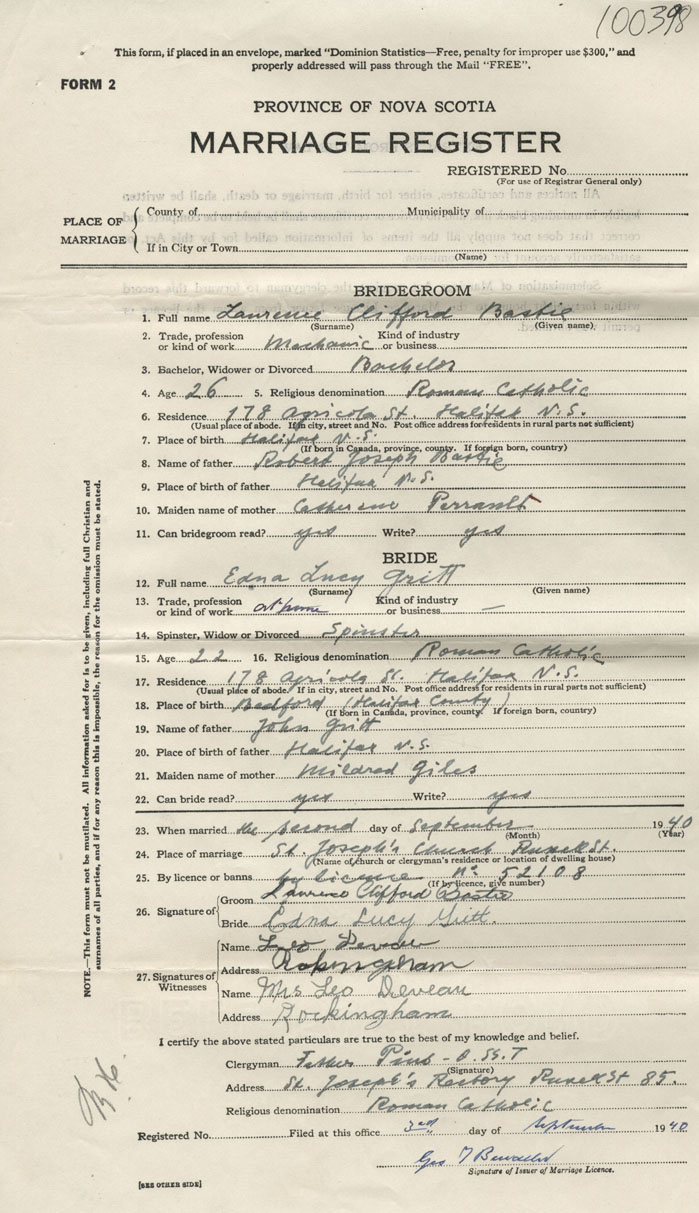 100398
This form, if placed in an envelope, marked "Dominion Statistics—Free, penalty for improper use $300," and
properly addressed will pass through the Mail "FREE".
FORM 2
PROVINCE OF NOVA SCOTIA
MARRIAGE REGISTER
REGISTERED No.
(For use of Registrar General only)
PLACE OF MARRIAGE
County of Municipality of
If in City or Town
(Name)
BRIDEGROOM
1. Full name Laurence Clifford Bastie
(Surname) (Given name)
2. Trade, profession or kind of work Mechanic Kind of industry or business
3. Bachelor, Widower or Divorced Bachelor
4. Age 26 5. Religious denomination Roman Catholic
6. Residence 178 Agricola St. Halifax N.S.
(Usual place of abode. If in city, street and No. Post office address for residents in rural parts not sufficient)
7. Place of birth Halifax N.S.
(If born in Canada, province, county. If foreign born, country)
8. Name of father Robert Joseph Bastie
9. Place of birth of father Halifax N.S.
10. Maiden name of mother Catherene Perrault
11. Can bridegroom read? yes Write? yes
BRIDE
12. Full name Edna Lucy Gritt
(Surname) (Given name)
13. Trade, profession or kind of work at home Kind of industry or business —
14. Spinster, Widow or Divorced Spinster
15. Age 22 16. Religious denomination Roman Catholic
17. Residence 178 Agricola St. Halifax N.S.
(Usual place of abode. If in city, street and No. Post office address for residents in rural parts not sufficient)
18. Place of birth Bedford (Halifax County)
(If born in Canada, province, county. If foreign born, country)
19. Name of father John Gritt
20. Place of birth of father Halifax N.S.
21. Maiden name of mother Mildred Giles
22. Can bride read? yes Write? yes
23. When married the second day of September 1940
(Month) (Year)
24. Place of marriage St. Joseph's Church Russell St.
(Name of church or clergyman's residence or location of dwelling house)
25. By licence or banns by licence No 52108
(If by licence, give number)
26. Signature of
Groom Laurence Clifford Bastie
Bride Edna Lucy Gritt.
27. Signatures of Witnesses
Name Leo Deveau
Address Rockingham
Name Mrs Leo Deveau
Address Rockingham
I certify the above stated particulars are true to the best of my knowledge and belief.
Clergyman Father
(Signature)
Address St. Joseph's Rectory Russell St 85.
Religious denomination Roman Catholic
Registered No. Filed at this office 3rd day of September 1940
Signature of Issuer of Marriage Licence.
[SEE OTHER SIDE]
NOTE.—This form must not be mutilated. All information asked for is to be given, including full Christian and
surnames of all parties, and if for any reason this is impossible, the reason for the omission must be stated.